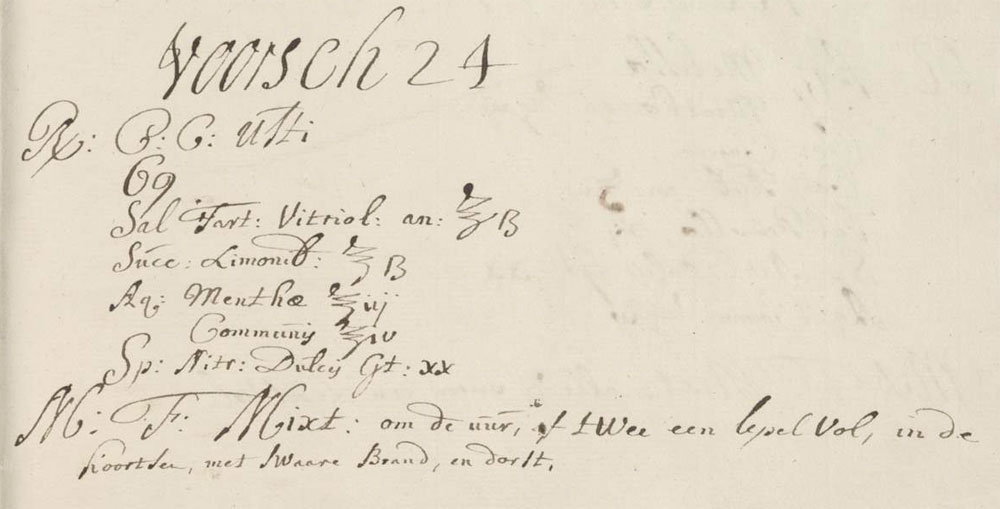 voorsch 24
℞: C: C: Usti
69
Sal Tart: Vitriol: an: ʒ ß
Succ: Limonib: ℥ ß
Aq: Menthæ ℥ iij
Communis ℥ iv
Sp: Nitr: Dulcis Gt: xx
M: F: Mixt: om de uur, of twee een lepel vol, in de
koortsen, met swaare Brand, en dorst.